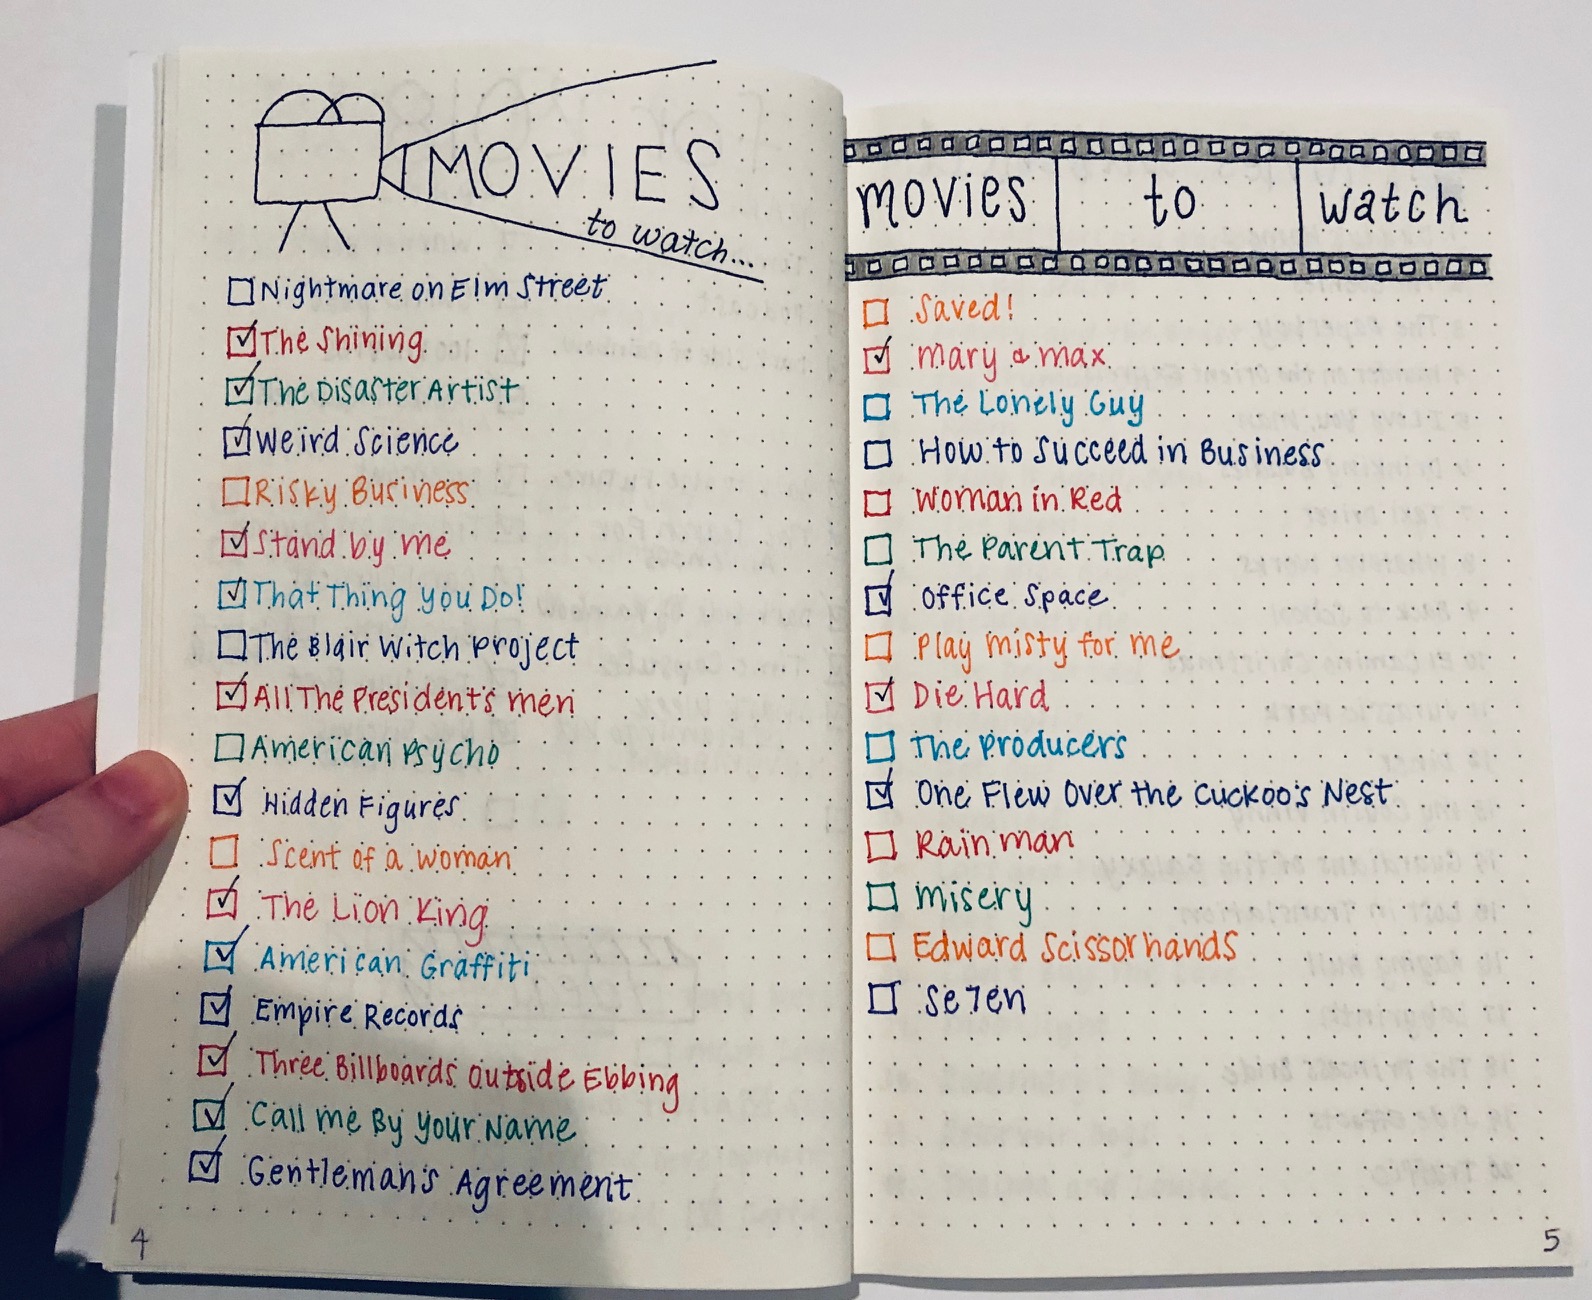 MOVIES
to watch...
Nightmare on Elm Street
The Shining
The Disaster Artist
Weird Science
Risky Business
Stand by me
That Thing you Do!
The Blair Witch Project
All The President's men
American Psycho
Hidden Figures
Scent of a woman
The Lion King
American Graffiti
Empire Records
Three Billboards Outside Ebbing
Call me By your Name
Gentleman's Agreement
4
movies to watch
Saved!
mary & max
The Lonely Guy
How to Succeed in Business
Woman in Red
The Parent Trap
Office Space
Play misty for me
Die Hard
The Producers
One Flew Over the Cuckoo's Nest
Rain man
misery
Edward Scissorhands
Se7en
5